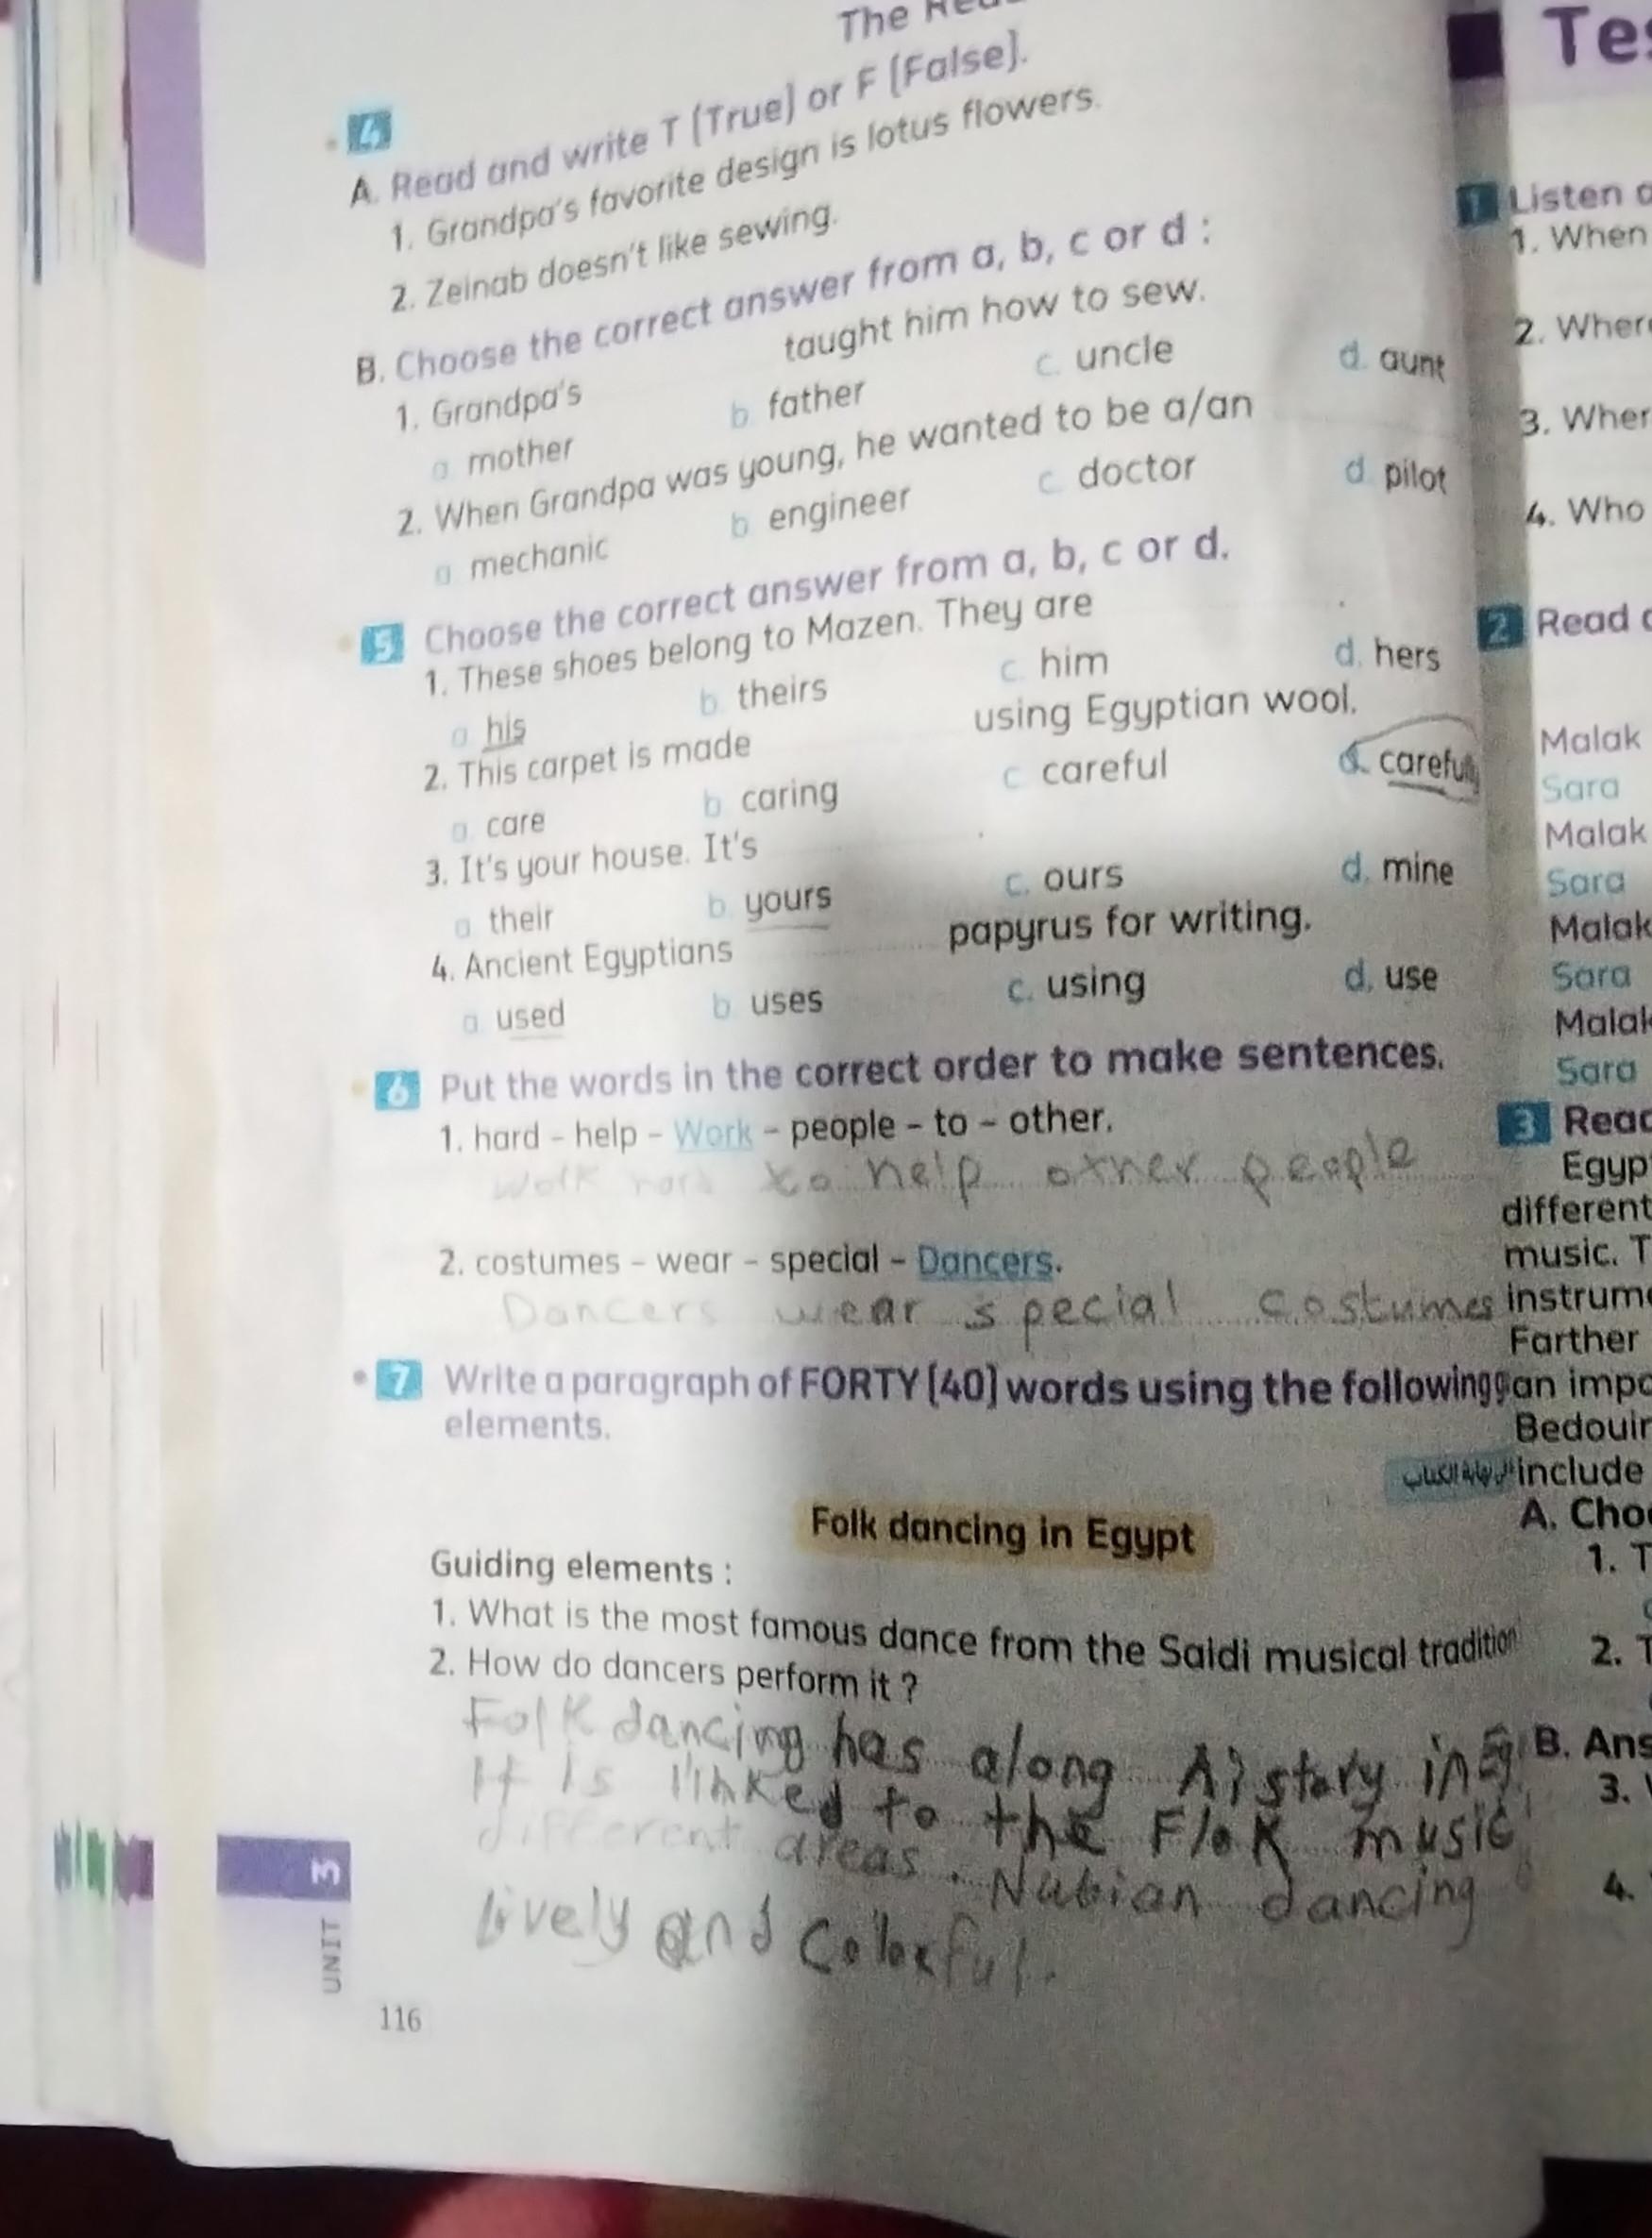 The
4
A. Read and write T (True) or F (False).
1. Grandpa's favorite design is lotus flowers.
2. Zeinab doesn't like sewing.
B. Choose the correct answer from a, b, c or d :
1. Grandpa's taught him how to sew.
a mother b father c. uncle d. aunt
2. When Grandpa was young, he wanted to be a/an
a mechanic b engineer c. doctor d. pilot
5 Choose the correct answer from a, b, c or d.
1. These shoes belong to Mazen. They are
a his b. theirs c. him d. hers
2. This carpet is made using Egyptian wool.
a. care b caring c careful d. carefully
3. It's your house. It's
a their b. yours c. ours d. mine
4. Ancient Egyptians papyrus for writing.
a used b uses c. using d. use
6 Put the words in the correct order to make sentences.
1. hard – help – Work – people – to – other.
Work hard to help other people
2. costumes – wear – special – Dancers.
Dancers wear special costumes
7 Write a paragraph of FORTY (40) words using the following
elements.
Folk dancing in Egypt
Guiding elements :
1. What is the most famous dance from the Saidi musical tradition
2. How do dancers perform it ?
Folk dancing has along history in Eg
It is linked to the Flok music
different areas. Nubian dancing
lively and Colorful.
UNIT 3
116
Tes
1 Listen
1. When
2. Where
3. Wher
4. Who
2 Read
Malak
Sara
Malak
Sara
Malak
Sara
Malak
Sara
3 Read
Egyp
different
music. T
instrum
Farther
an impo
Bedouin
include
A. Cho
1. T
2. T
B. Ans
3.
4.